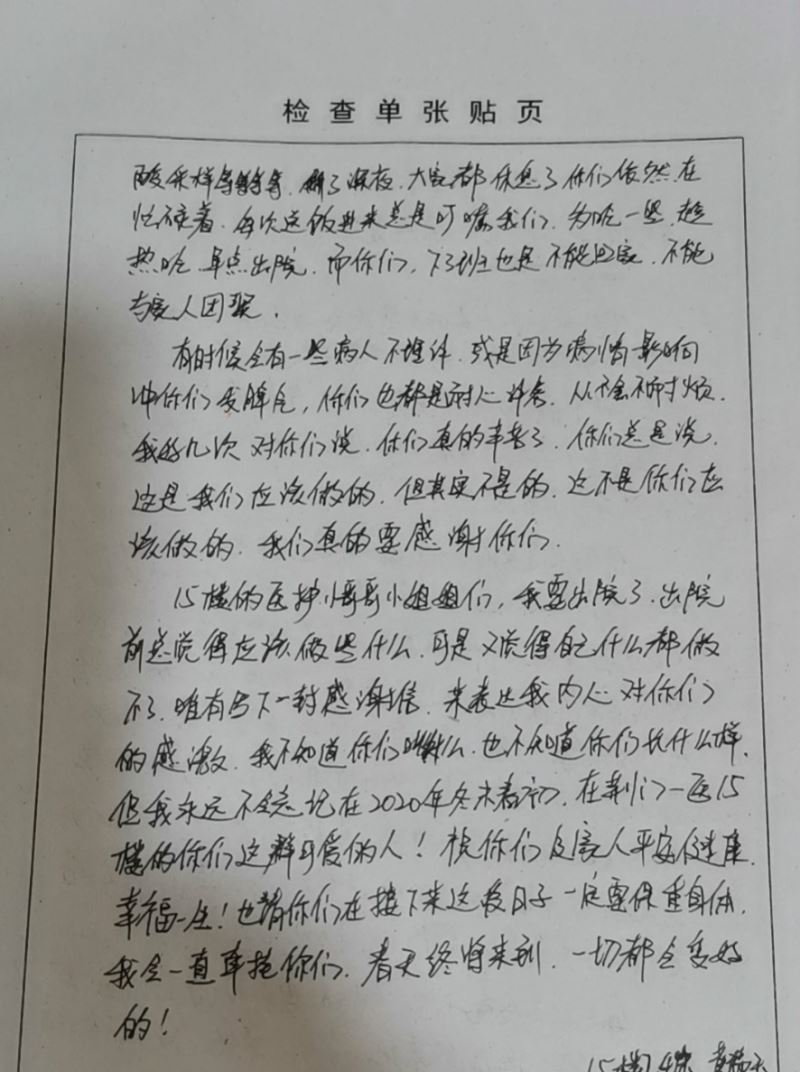 检查单张贴页
酸采样等等等,到了深夜,大家都休息了你们依然在
忙碌着。每次送饭进来总是叮嘱我们,多吃一些,趁
热吃,早点出院,而你们,下了班也是不能回家,不能
与家人团聚。
有时候会有一些病人不理解,或是因为病情影响
冲你们发脾气,你们也都是耐心许多,从不会不耐烦。
我好几次对你们说,你们真的辛苦了,你们总是说,
这是我们应该做的,但其实不是的,这不是你们应
该做的,我们真的要感谢你们。
15楼的医护小哥哥小姐姐们,我要出院了,出院
前总觉得应该做些什么,可是又觉得自己什么都做
不了,唯有写下一封感谢信,来表达我内心对你们
的感激,我不知道你们叫什么,也不知道你们长什么样,
但我永远不会忘记在2020年冬末春初,在荆门一医15
楼的你们这群可爱的人!祝你们及家人平安健康,
幸福一生!也请你们在接下来这段日子一定要保重身体,
我会一直牵挂你们,春天终将来到,一切都会变好
的!
15楼